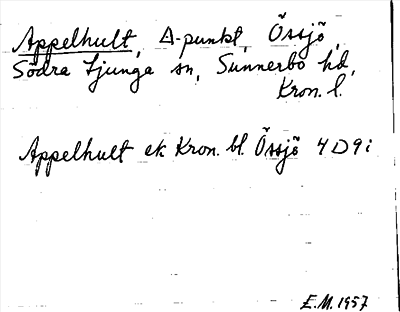 Appelhult, Δ-punkt, Össjö,
Södra Ljunga sn, Sunnerbo hd,
Kron. l.
Appelhult ek Kron. bl. Össjö 4D9i
E.M. 1957